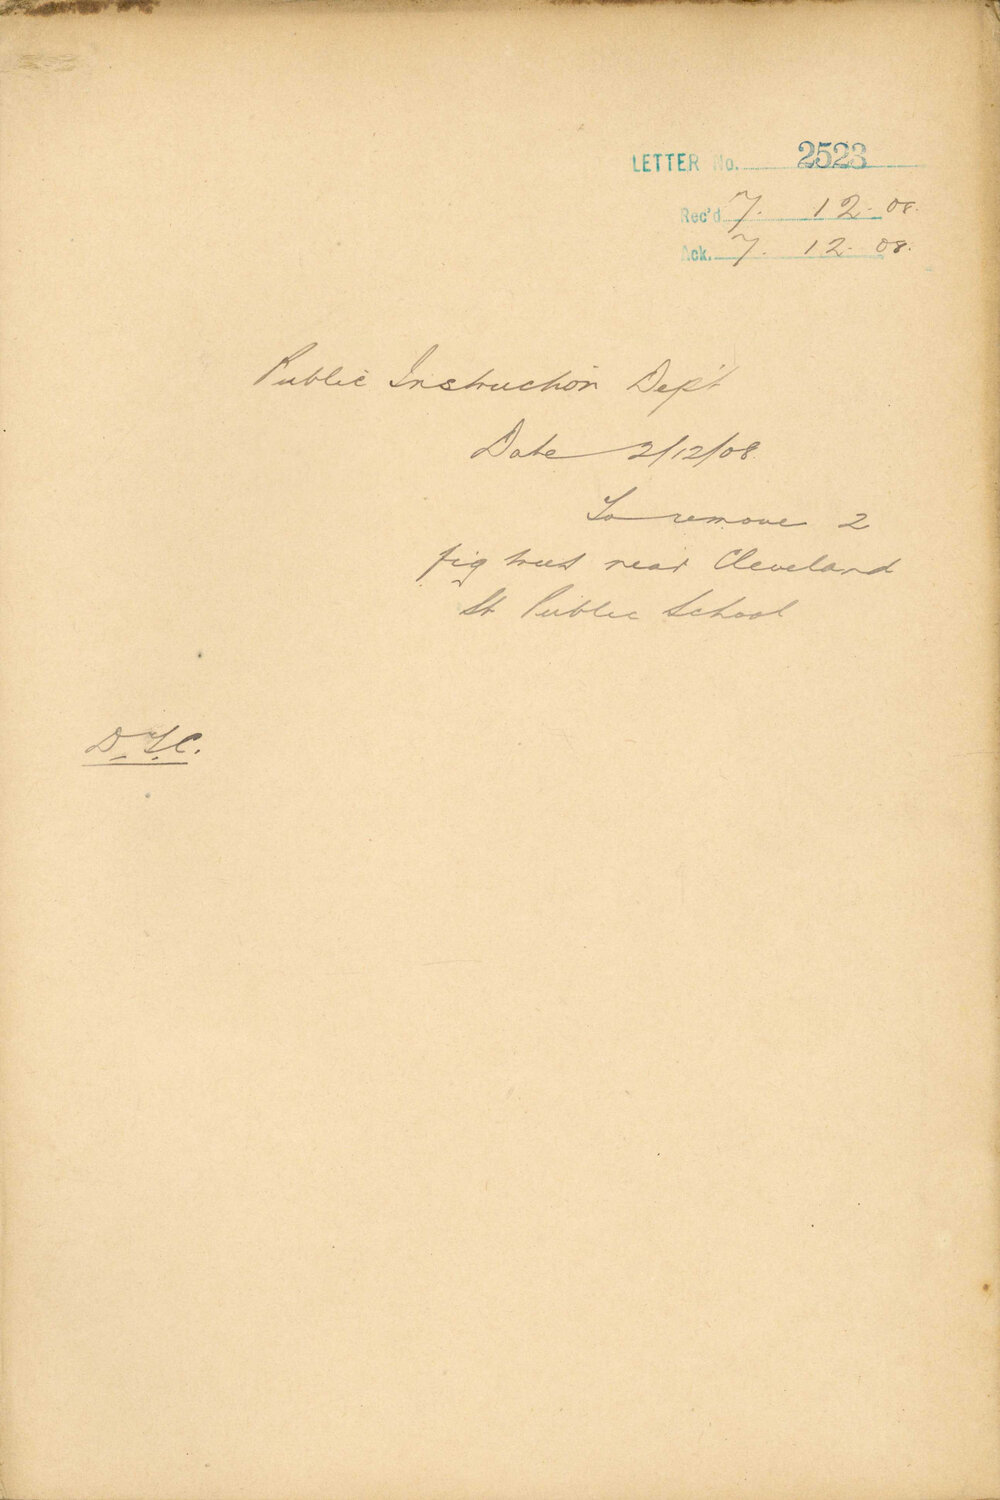 LETTER No. 2523
Rec'd 7. 12. 08.
Ack. 7. 12. 08.
Public Instruction Dept
Date 2/12/08
To remove 2
fig trees near Cleveland
St Public School
D.T.C.